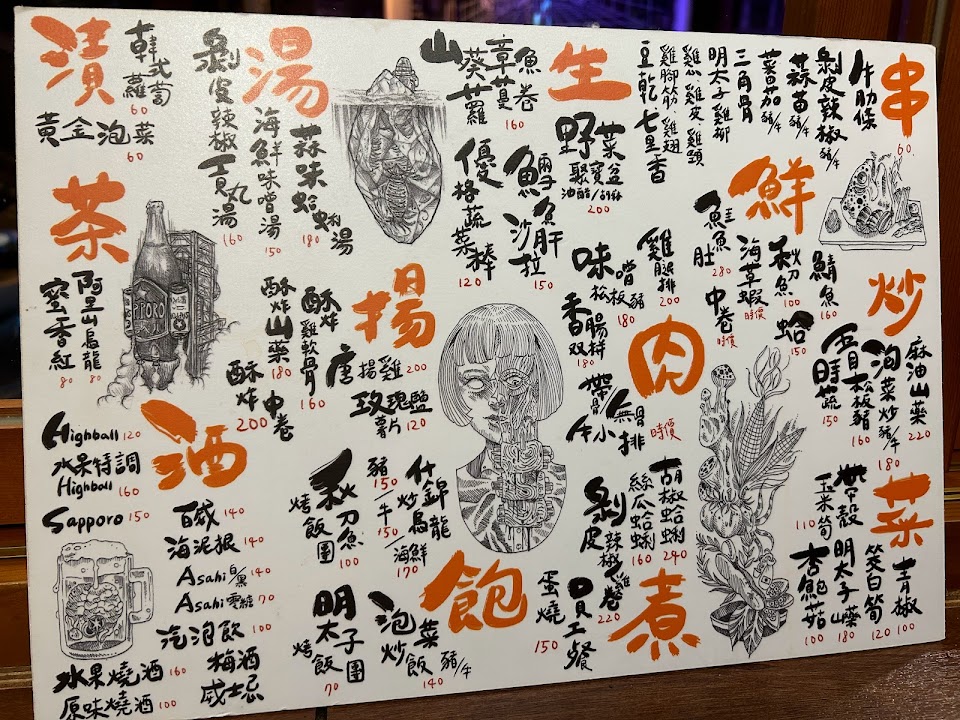 串
牛肋條
剝皮辣椒 豬/牛
蒜苗 豬/牛
蕃茄 豬/牛
三角骨
明太子雞柳
雞心.雞皮.雞頸
雞腳筋.雞翅
豆乾.七里香
60.
生
章魚
山葵蔓蘿卷
160
野菜聚寶盆
油醋/胡麻
200
優格蔬菜棒
120
魚子魚肝沙拉
150
湯
蒜味蛤蜊湯
180
海鮮味噌湯
150
剝皮辣椒貢丸湯
160
漬
韓式蘿蔔
60
黃金泡菜
60
茶
阿里山烏龍
80
蜜香紅
80
SAPPORO
鮮
鯖魚
160
秋刀魚
100
蛤
150
海草蝦
時價
鮭魚肚
280
中卷
時價
肉
雞腿排
200
味噌松板豬
180
香腸双拼
180
帶骨/無骨牛小排
時價
揚
唐揚雞 200
玫瑰鹽薯片 120
酥炸雞軟骨
160
酥炸山藥
180
酥炸中卷
200
炒
麻油山藥
220
泡菜炒 豬/牛
180
松板豬
160
時蔬
150
菜
青椒
100
筊白筍
120
明太子山藥
180
杏鮑菇
100
帶殼玉米筍
110
煮
胡椒蛤蜊
240
絲瓜蛤蜊
160
剝皮辣椒雞
220
飽
什錦炒烏龍
豬 150/牛 150/海鮮 170
秋刀魚烤飯團
100
明太子烤飯團
70
泡菜炒飯 豬/牛
140
蛋燒
150
員工餐
酒
Highball 120
水果特調
Highball 160
Sapporo 150
百威 140
海泥根 140
Asahi 白/黑 140
Asahi 零糖 70
汽泡飲 100
水果燒酒 160
原味燒酒 100
梅酒
威士忌